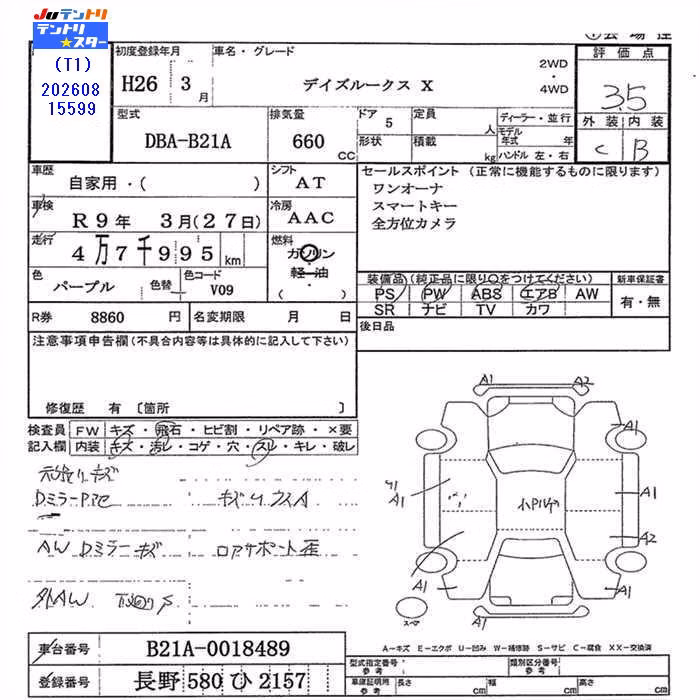 JUテントリ
テントリ★スター
(T1)
202608
15599
初度登録年月
車名・グレード
H26 3月
デイズルークス X
2WD
・
4WD
評価点
3.5
外装 内装
C B
型式
DBA-B21A
排気量
660 CC
ドア 5
定員 人
形状
積載 kg
ディーラー・並行
モデル年式 年
ハンドル 左・右
車歴
自家用・( )
シフト
AT
車検
R9年 3月(27日)
冷房
AAC
走行
4万7千995km
燃料
ガソリン
軽・油
( )
色
パープル
色替
色コード
V09
セールスポイント (正常に機能するものに限ります)
ワンオーナ
スマートキー
全方位カメラ
装備品(純正品に限り○をつけてください)
PS PW ABS エアB AW
SR ナビ TV カワ
新車保証書
有・無
R券 8860 円
名変期限 月 日
後日品
注意事項申告欄(不具合内容等は具体的に記入して下さい)
修復歴 有 〔箇所 〕
検査員記入欄
FW キズ・飛石・ヒビ割・リペア跡・×要
内装 キズ・汚レ・コゲ・穴・スレ・キレ・破レ
AW Dミラーキズ
ロアサポート歪
外AW
A1 A2
A1
A1
A1
A1
A2
A1
A1
スマ
A-キズ E-エクボ U-凹み W-補修跡 S-サビ C-腐食 XX-交換済
車台番号 B21A-0018489
登録番号 長野 580 ひ 2157
型式指定番号 参考
類別区分番号 参考
車庫証明用 参考
長さ cm
幅 cm
高さ cm